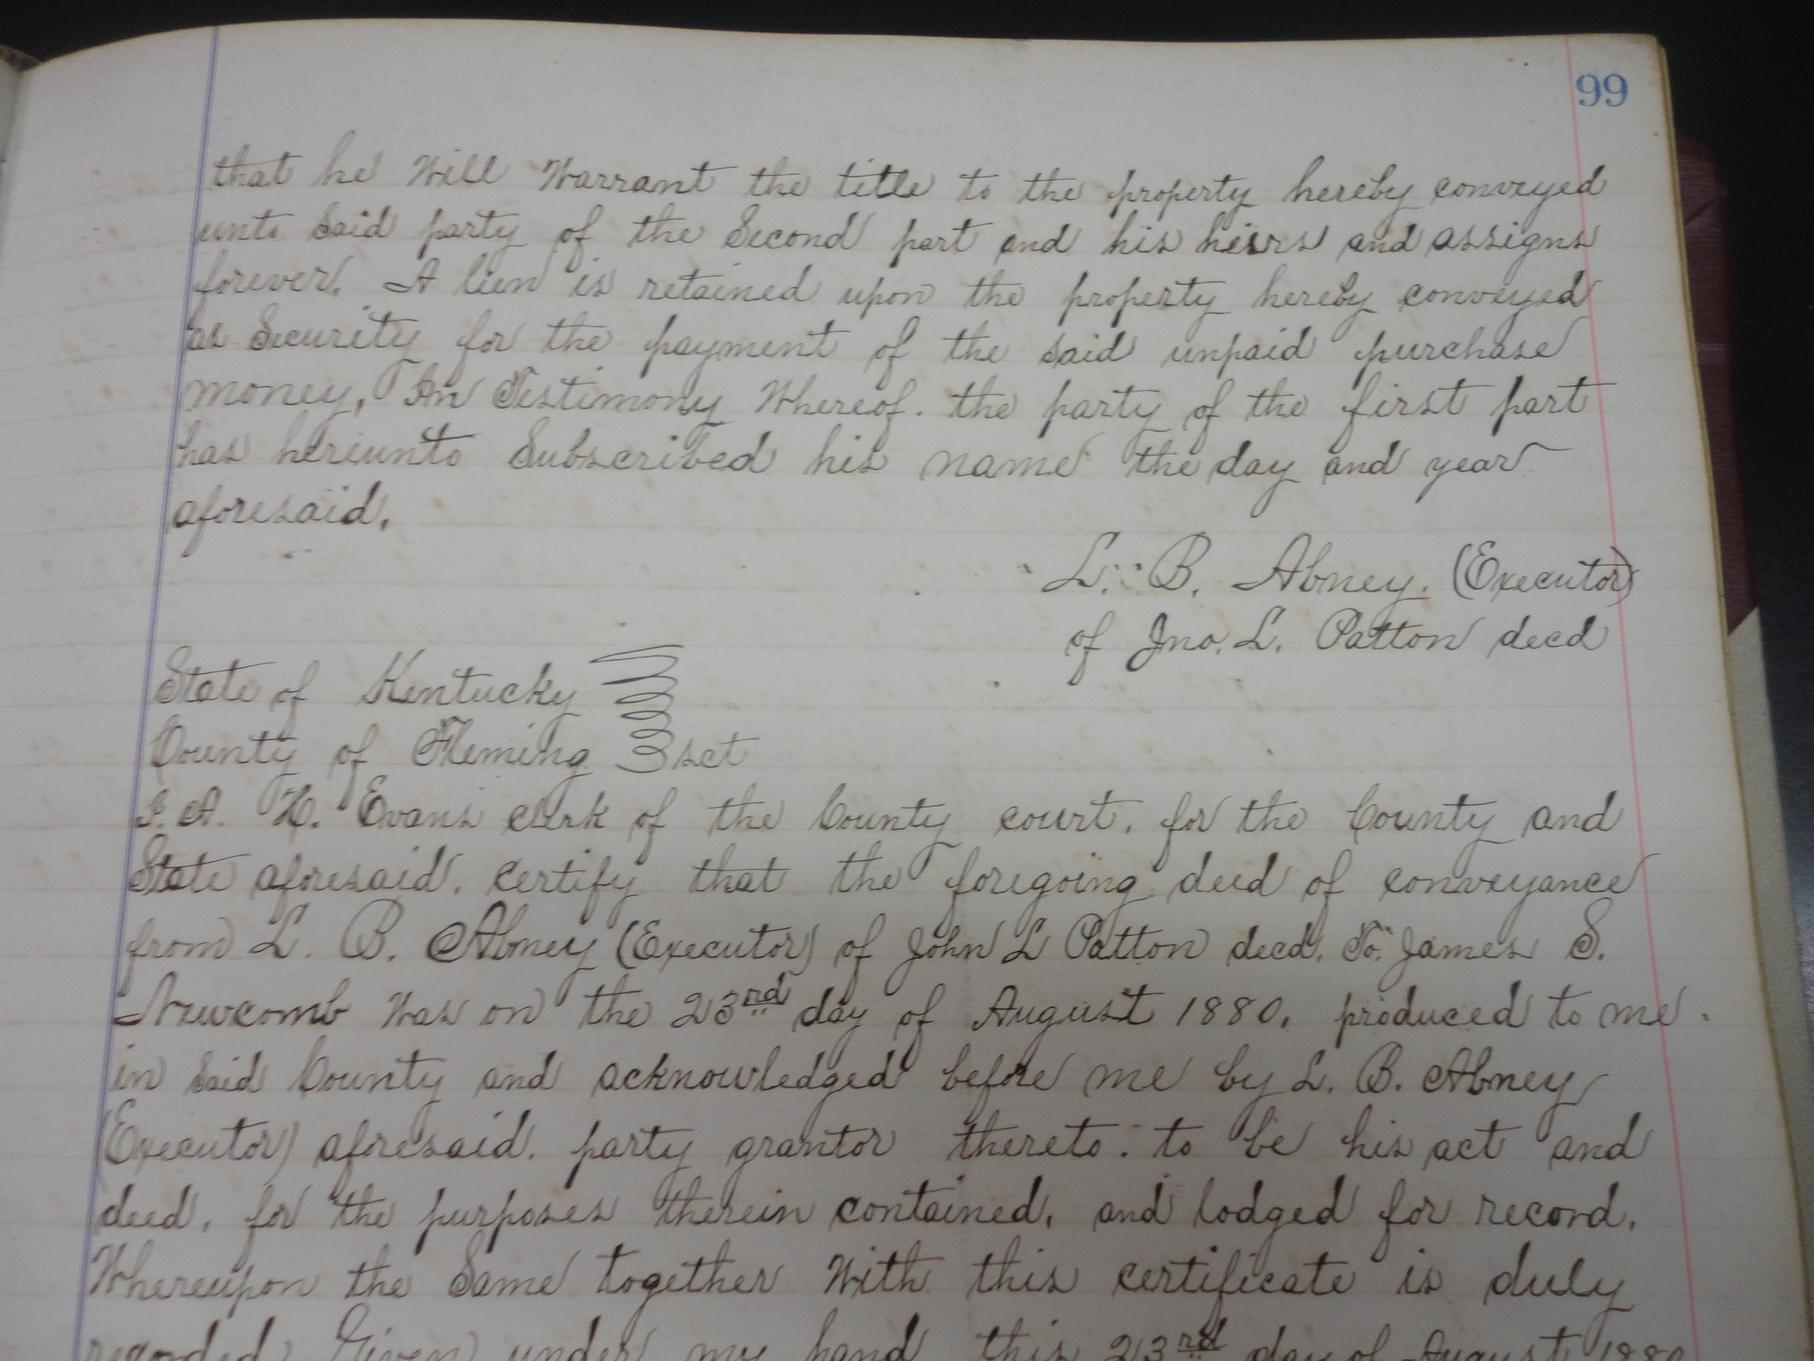 99
that he Will Warrant the title to the property hereby conveyed
unto Said party of the Second part and his heirs and assigns
forever. A lien is retained upon the property hereby conveyed
as Security for the payment of the said unpaid purchase
money, In Testimony Whereof. the party of the first part
has hereunto Subscribed his name the day and year
aforesaid.
L. B. Abney. (Executor)
of Jno. L. Patton decd
State of Kentucky
County of Fleming } sct
I. A. H. Evans clerk of the County court. for the County and
State aforesaid. certify that the foregoing deed of conveyance
from L. B. Abney (Executor) of John L Patton decd. To. James S.
Newcomb Was on the 23rd day of August 1880. produced to me
in Said County and acknowledged before me by L. B. Abney
(Executor) aforesaid. party grantor thereto. to be his act and
deed. for the purposes therein contained. and lodged for record.
Whereupon the Same together With this certificate is duly
recorded Given under my hand this 23rd day of August 1880